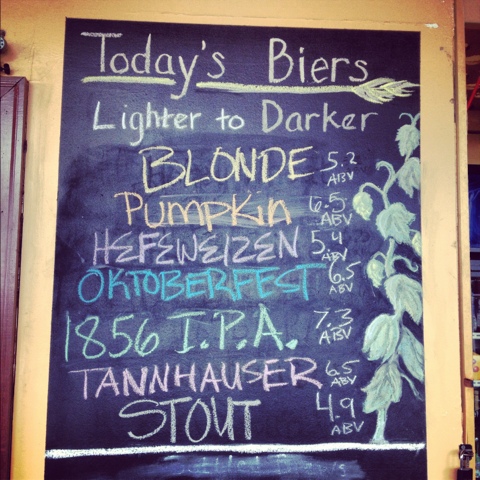 Today's Biers
Lighter to Darker
BLONDE 5.2 ABV
PUMPKIN 6.5 ABV
HEFEWEIZEN 5.4 ABV
OKTOBERFEST 6.5 ABV
1856 I.P.A. 7.3 ABV
TANNHAUSER 6.5 ABV
STOUT 4.9 ABV